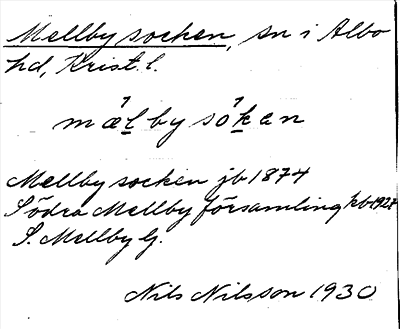 Mellby socken, sn i Albo
hd, Krist. l.
mælby sóken
Mellby socken jb 1874
Södra Mellby församling kb 1927
S. Mellby G.
Nils Nilsson 1930